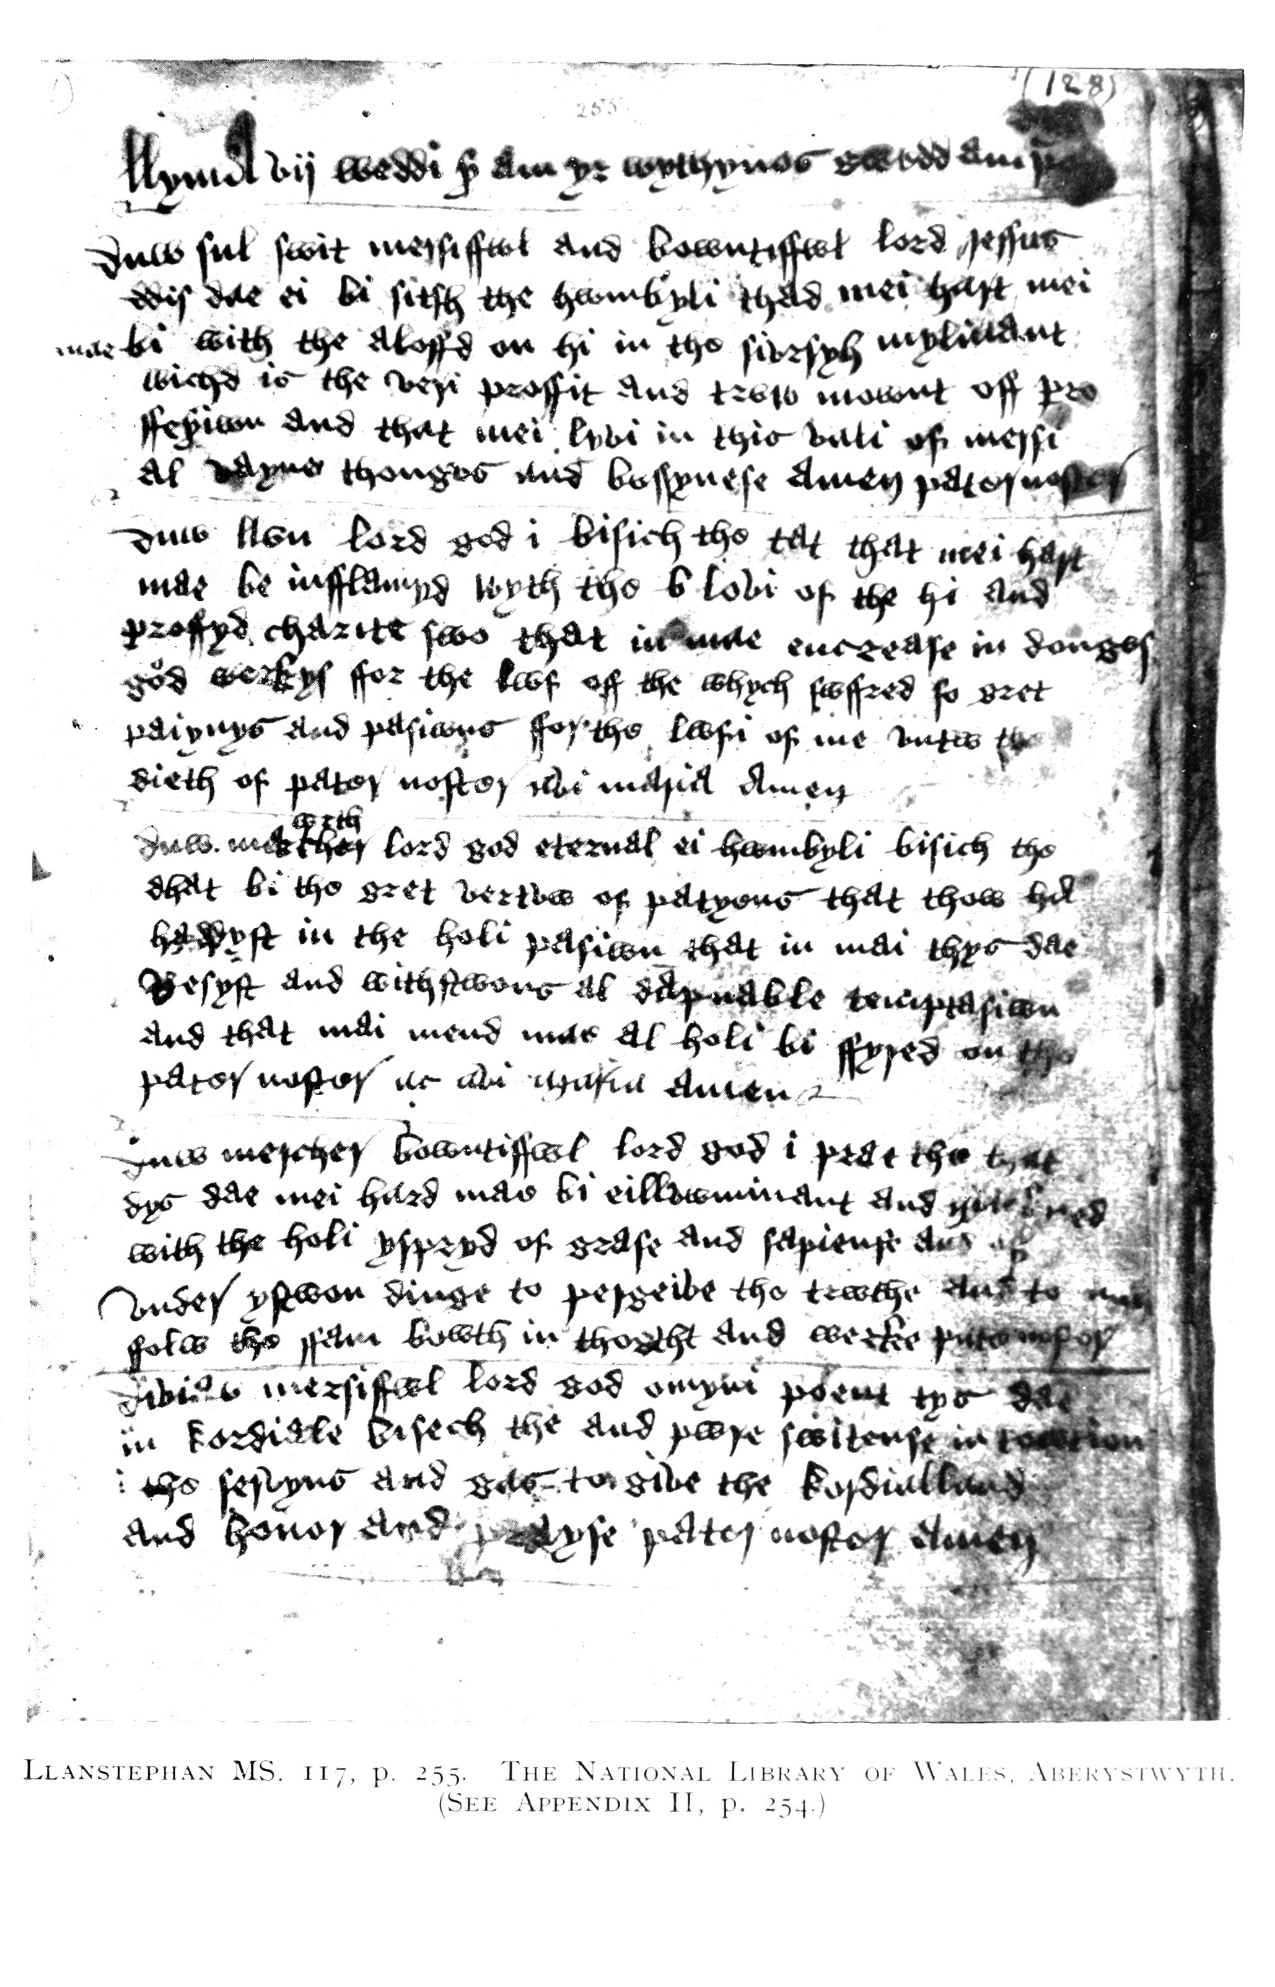 (128)
255
llyma vij weddi am yr wythynos
duw sul swit messiffwl and bowntiffwl lord Jessus
ddis dae ei bi sitsh the hwmbyli thad mei hart mei
mae bi with the aloffd on hi in the
wichd is the veri proffit and trvw mownt off pro
ffesiwn and that mei lybi in this vali of messi
al vayne thonges and bessynese amen pater noster
duw llvn lord god i bisich the tat that mei hart
mae be infflamyd wyth the lobi of the hi and
proffyd charite swo that in mae encrease in donges
god werkys ffor the lwf off the whych swffred so gret
paiynys and pasiwns ffor the lwfi of me vntw the
dieth of pater noster abi maria Amen
wrth
duw lord god eternal ei hwmbyli bisich the
dhat bi the gret vertvw of patyens that thow
in the holi pasiwn that in mai thys dae
Resyst and withstwons al dapnable temptasiwn
and that mai mend mae al holi bi ffyred on the
pater noster ac abi maria amen
duw mercher bowntiffwl lord god i prae the that
dys dae mei hard mae bi eillvwminant and
with the holi yspryd of grase and sapiense and of
vnder ystwon dinge to perseibe the trwthe and to
ffolw the ffam bowth in thoght and werke pater noster
mersiffwl lord god omyni poent tys dae
in kordiale bisech the and pwre
the and to gibe the
and honor and prayse pater noster amen
LLANSTEPHAN MS. 117, p. 255. THE NATIONAL LIBRARY OF WALES, ABERYSTWYTH.
(SEE APPENDIX II, p. 254.)